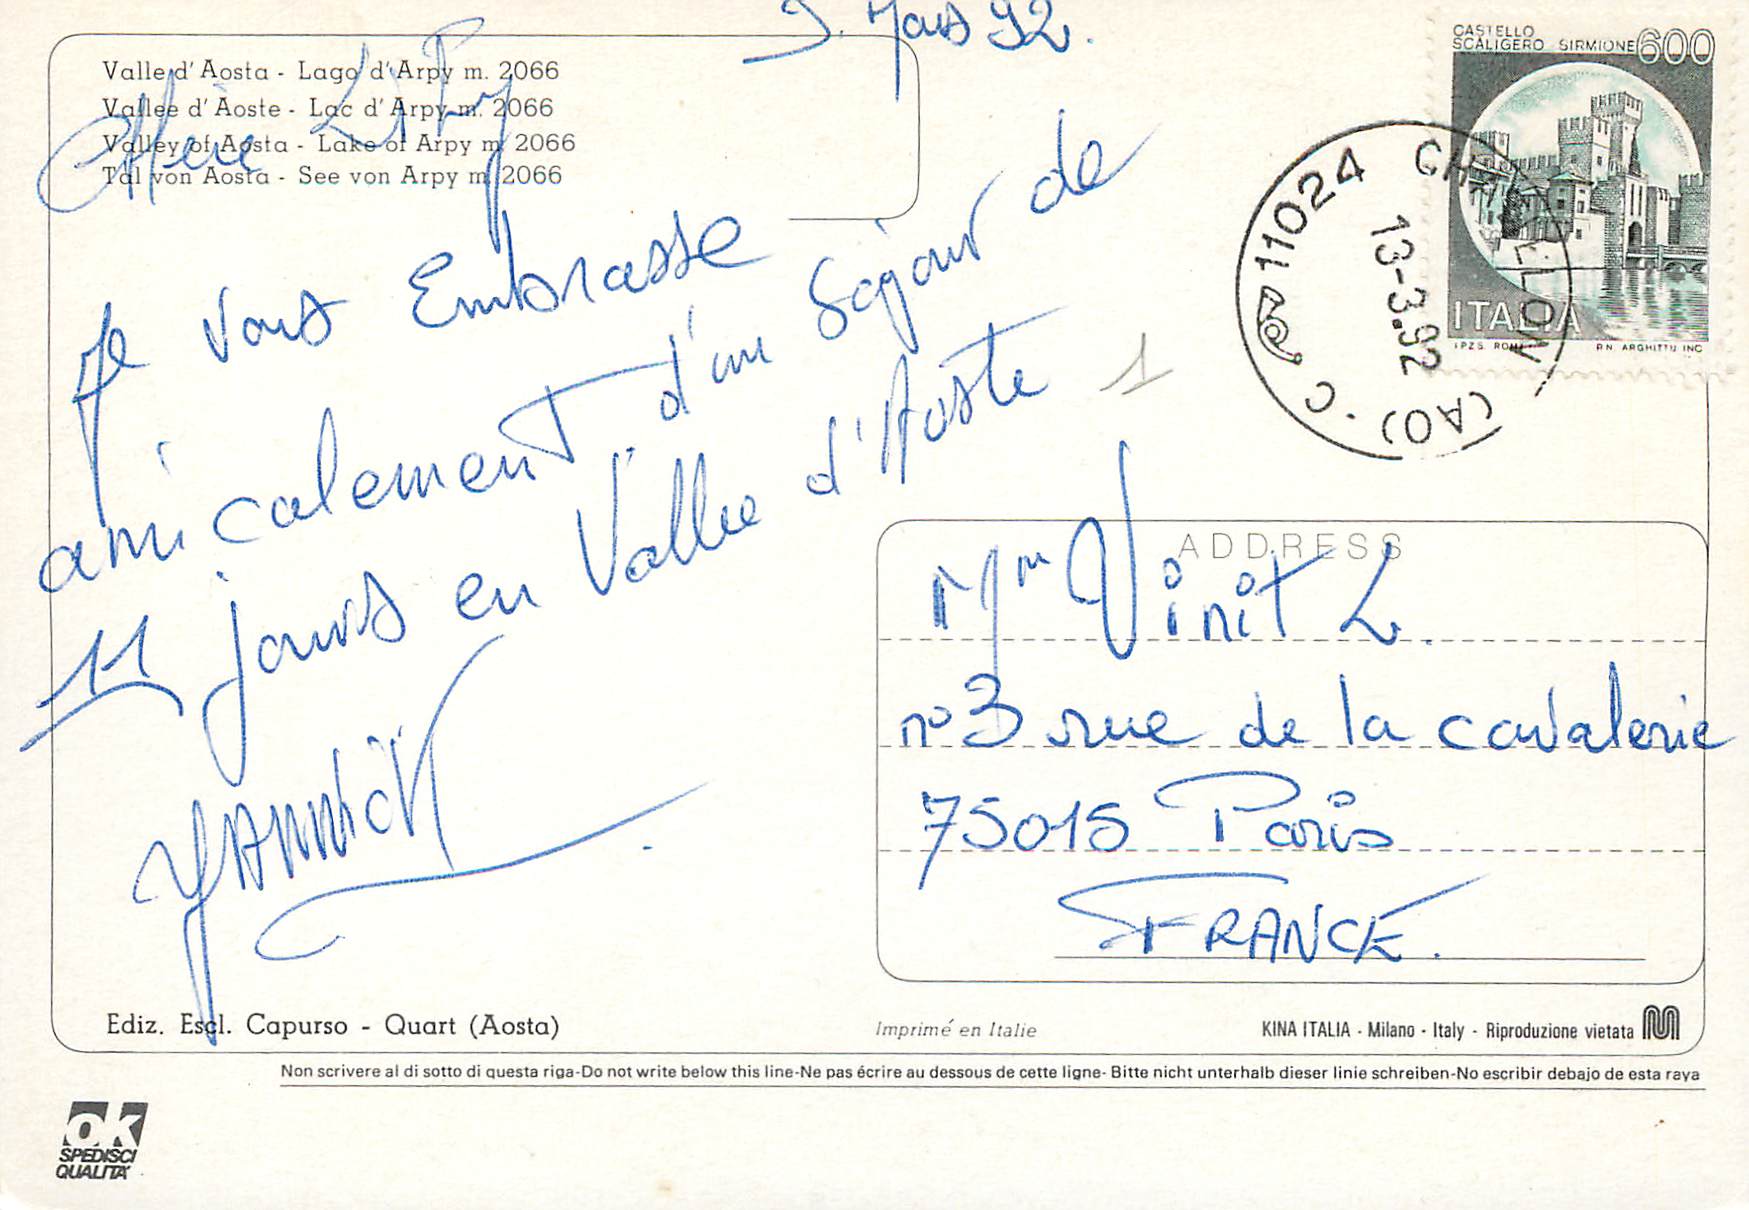 9. Mars 92.
Valle d'Aosta - Lago d'Arpy m. 2066
Vallée d'Aoste - Lac d'Arpy m. 2066
Valley of Aosta - Lake of Arpy m. 2066
Tal von Aosta - See von Arpy m. 2066
Chère Lily
Je vous Embrasse
amicalement d'un séjour de
11 jours en Vallée d'Aoste
YANNICK
CASTELLO
SCALIGERO SIRMIONE 600
ITALIA
I.P.Z.S. ROMA
P.N. ARGHITTU INC.
11024 CHATILLON (AO) . C
13-3.92
1
ADDRESS
Mme Vinit L.
n° 3 rue de la cavalerie
75015 Paris
FRANCE.
Ediz. Escl. Capurso - Quart (Aosta)
Imprimé en Italie
KINA ITALIA - Milano - Italy - Riproduzione vietata
Non scrivere al di sotto di questa riga-Do not write below this line-Ne pas écrire au dessous de cette ligne- Bitte nicht unterhalb dieser linie schreiben-No escribir debajo de esta raya
OK
SPEDISCI
QUALITA'